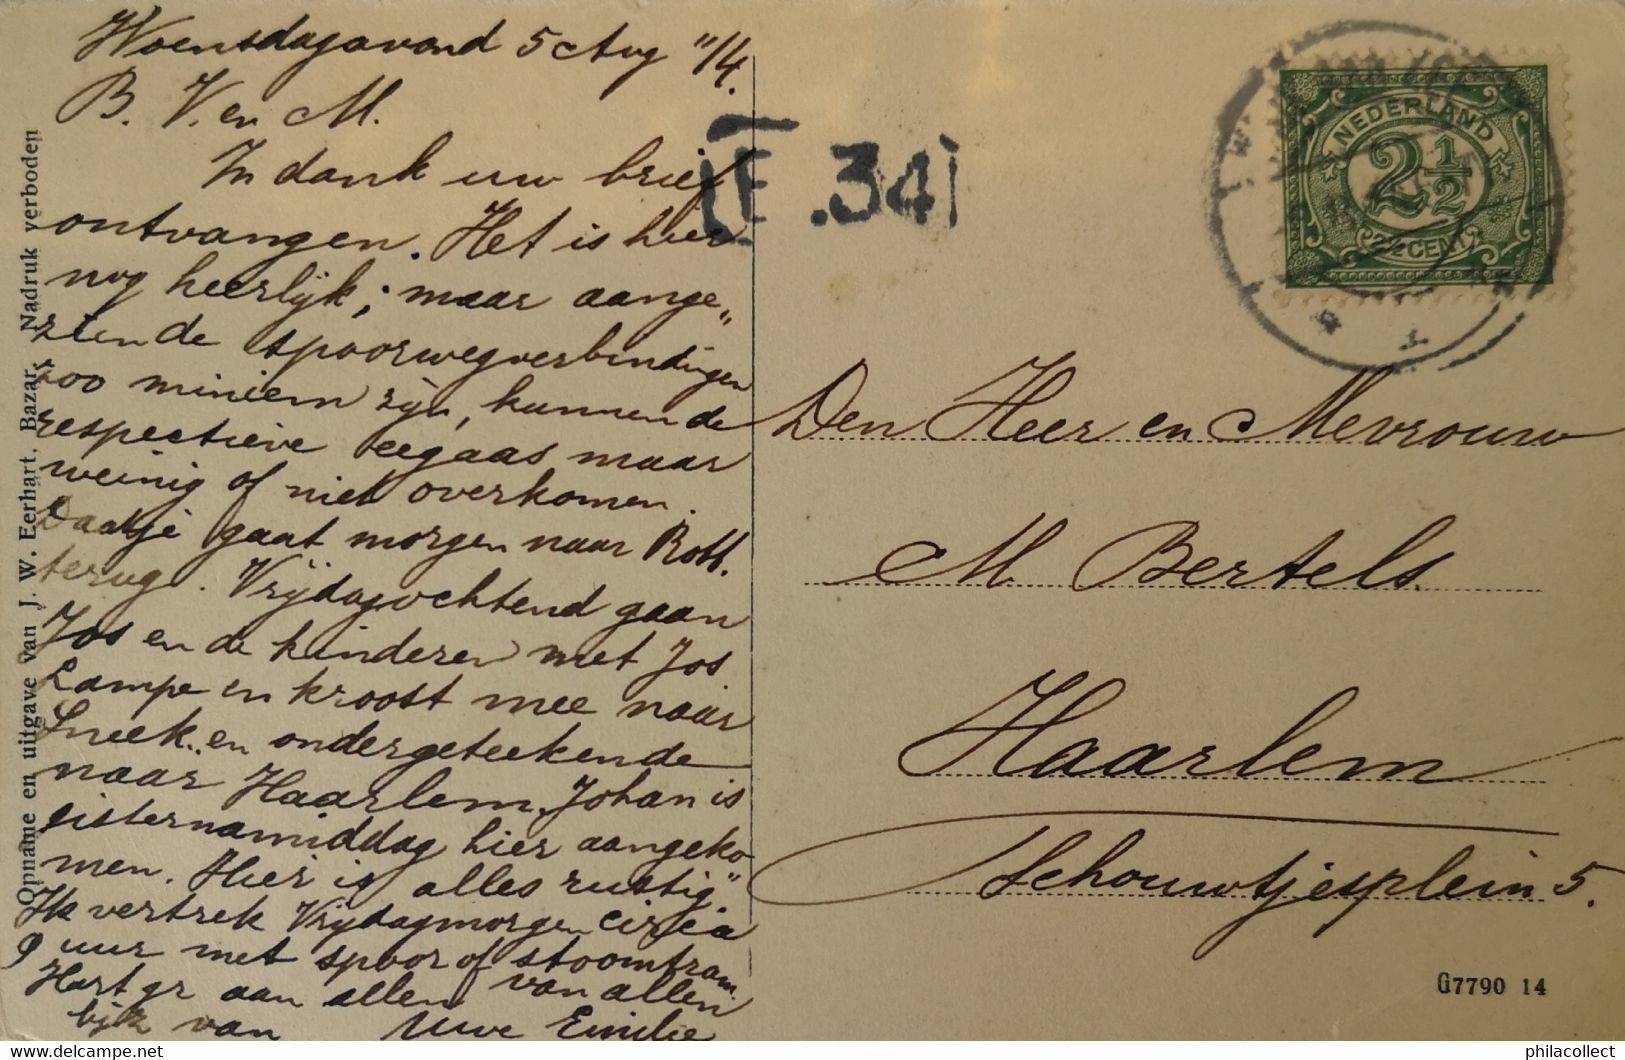 Woensdagavond 5 Aug "14.
B. V. en M.
In dank uw brief
ontvangen. Het is hier
nog heerlijk; maar aange„
ziende spoorwegverbindingen
zoo miniem zijn, kunnen de
respectieve eegaas maar
weinig of niet overkomen.
Daatje gaat morgen naar Rott.
terug. Vrijdagochtend gaan
Jos en de kinderen met Jos
Lampe en kroost mee naar
Sneek en ondergeteekende
naar Haarlem. Johan is
gisternamiddag hier aangeko„
men. Hier is alles rustig
Ik vertrek Vrijdagmorgen circa
9 uur met spoor of stoomtram.
Hart gr aan allen van allen
bijz van Uwe Emilie
Opname en uitgave van J. W. Eerhart, Bazar. Nadruk verboden
E .34
NEDERLAND
2 1/2
2½ CENT
Den Heer en Mevrouw
M Bertels.
Haarlem
Schouwtjesplein 5.
G7790 14
philacollect
delcampe.net